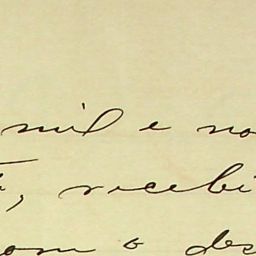 mil e no
, recebi
om o des